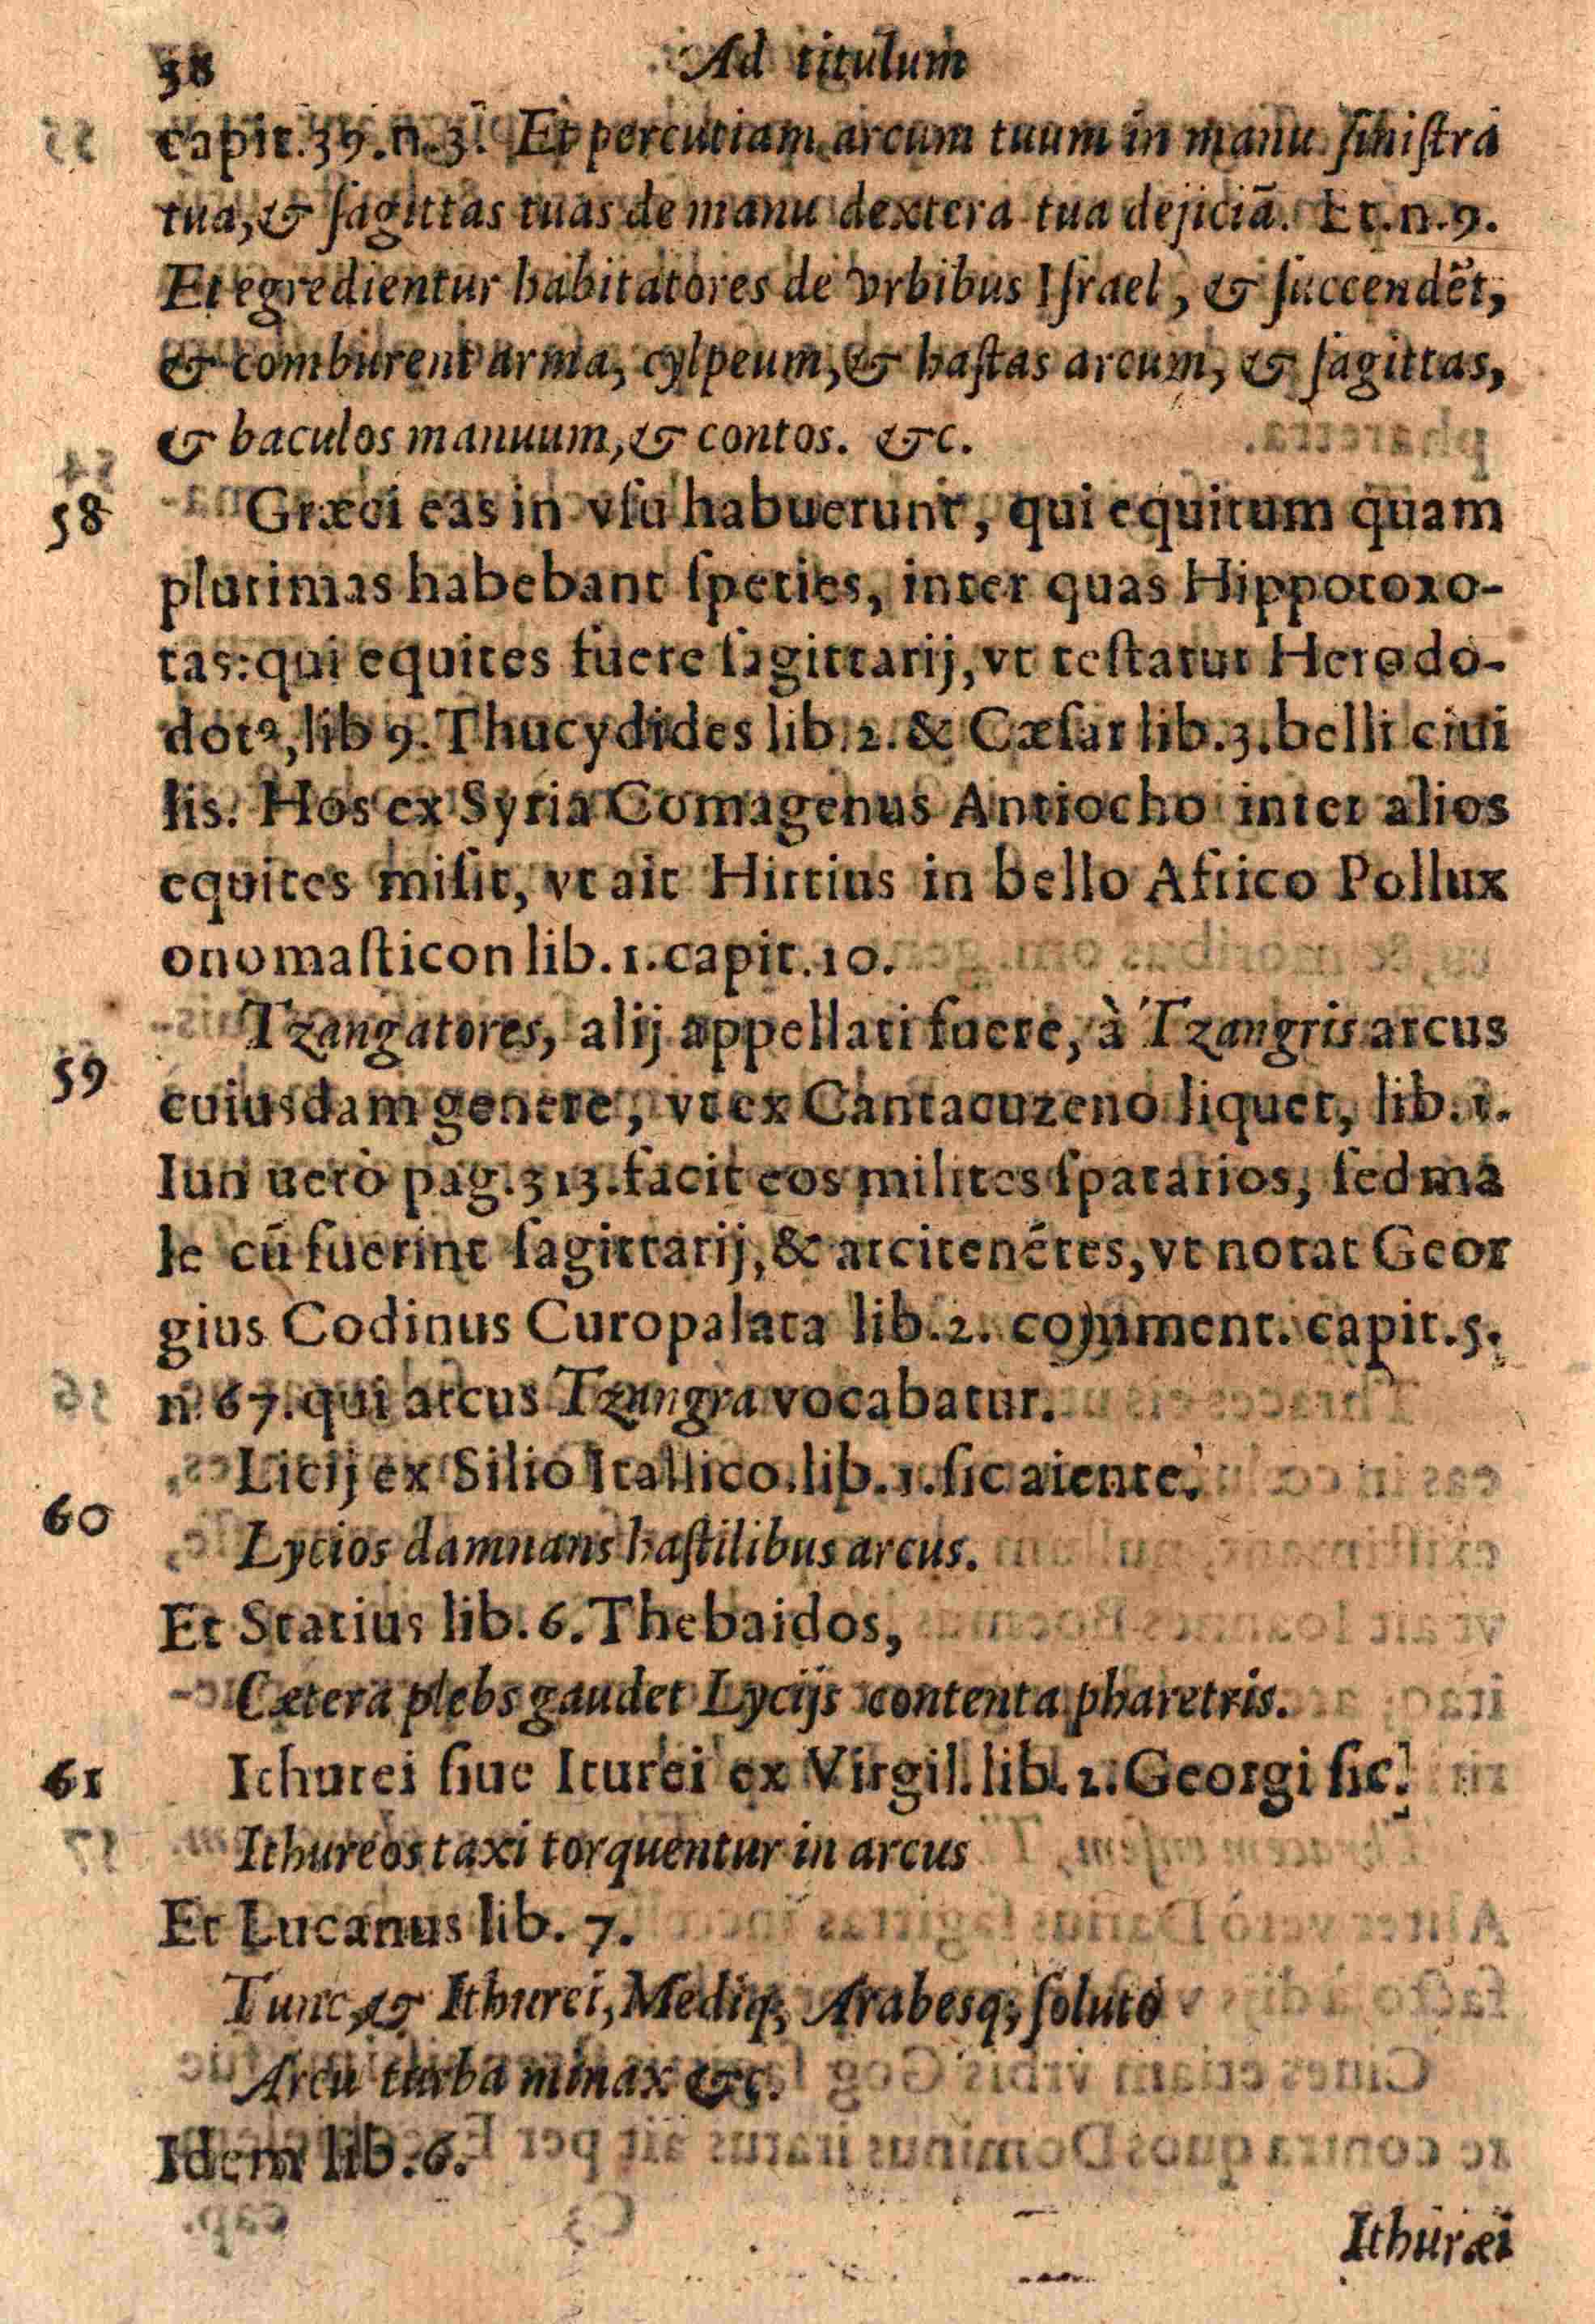 38 Ad titulum
capit.39.n.3. Et percutiam arcum tuum in manu ſiniſtra
tua,& ſagittas tuas de manu dextera tua dejiciã. Et.n.9.
Et egredientur habitatores de vrbibus Iſrael, & ſuccendẽt,
& comburent arma, cylpeum,& haſtas arcum, & ſagittas,
& baculos manuum,& contos. &c.
58 Græci eas in vſu habuerunt, qui equitum quam
plurimas habebant ſpeties, inter quas Hippotoxo-
tas:qui equites fuere ſagittarij,vt teſtatur Herodo-
dotꝰ,lib 9. Thucydides lib.2.& Cæſar lib.3.belli ciui
lis. Hos ex Syria Comagenus Antiocho inter alios
equites miſit, vt ait Hirtius in bello Africo Pollux
onomaſticon lib.1.capit.10.
Tzangatores, alij appellati fuere, à Tzangris arcus
59 cuiusdam genere, vt ex Cantacuzeno liquet, lib.1.
Iun uerò pag.313.facit eos milites ſpatarios, ſed ma
le cũ fuerint ſagittarij,& arcitenẽtes,vt notat Geor
gius Codinus Curopalata lib.2. comment. capit.5.
n.67.qui arcus Tzangra vocabatur.
Licij ex Silio Itallico.lib.1.ſic aiente.
60 Lycios damnans haſtilibus arcus.
Et Statius lib.6.Thebaidos,
Cætera plebs gaudet Lycijs contenta pharetris.
61 Ithurei ſiue Iturei ex Virgil.lib.2.Georgi ſic.
Ithureos taxi torquentur in arcus
Et Lucanus lib. 7.
Tunc,& Ithurei,Mediq; Arabesq; ſoluto
Arcu turba minax &c.
Idem lib.6.
Ithuræi